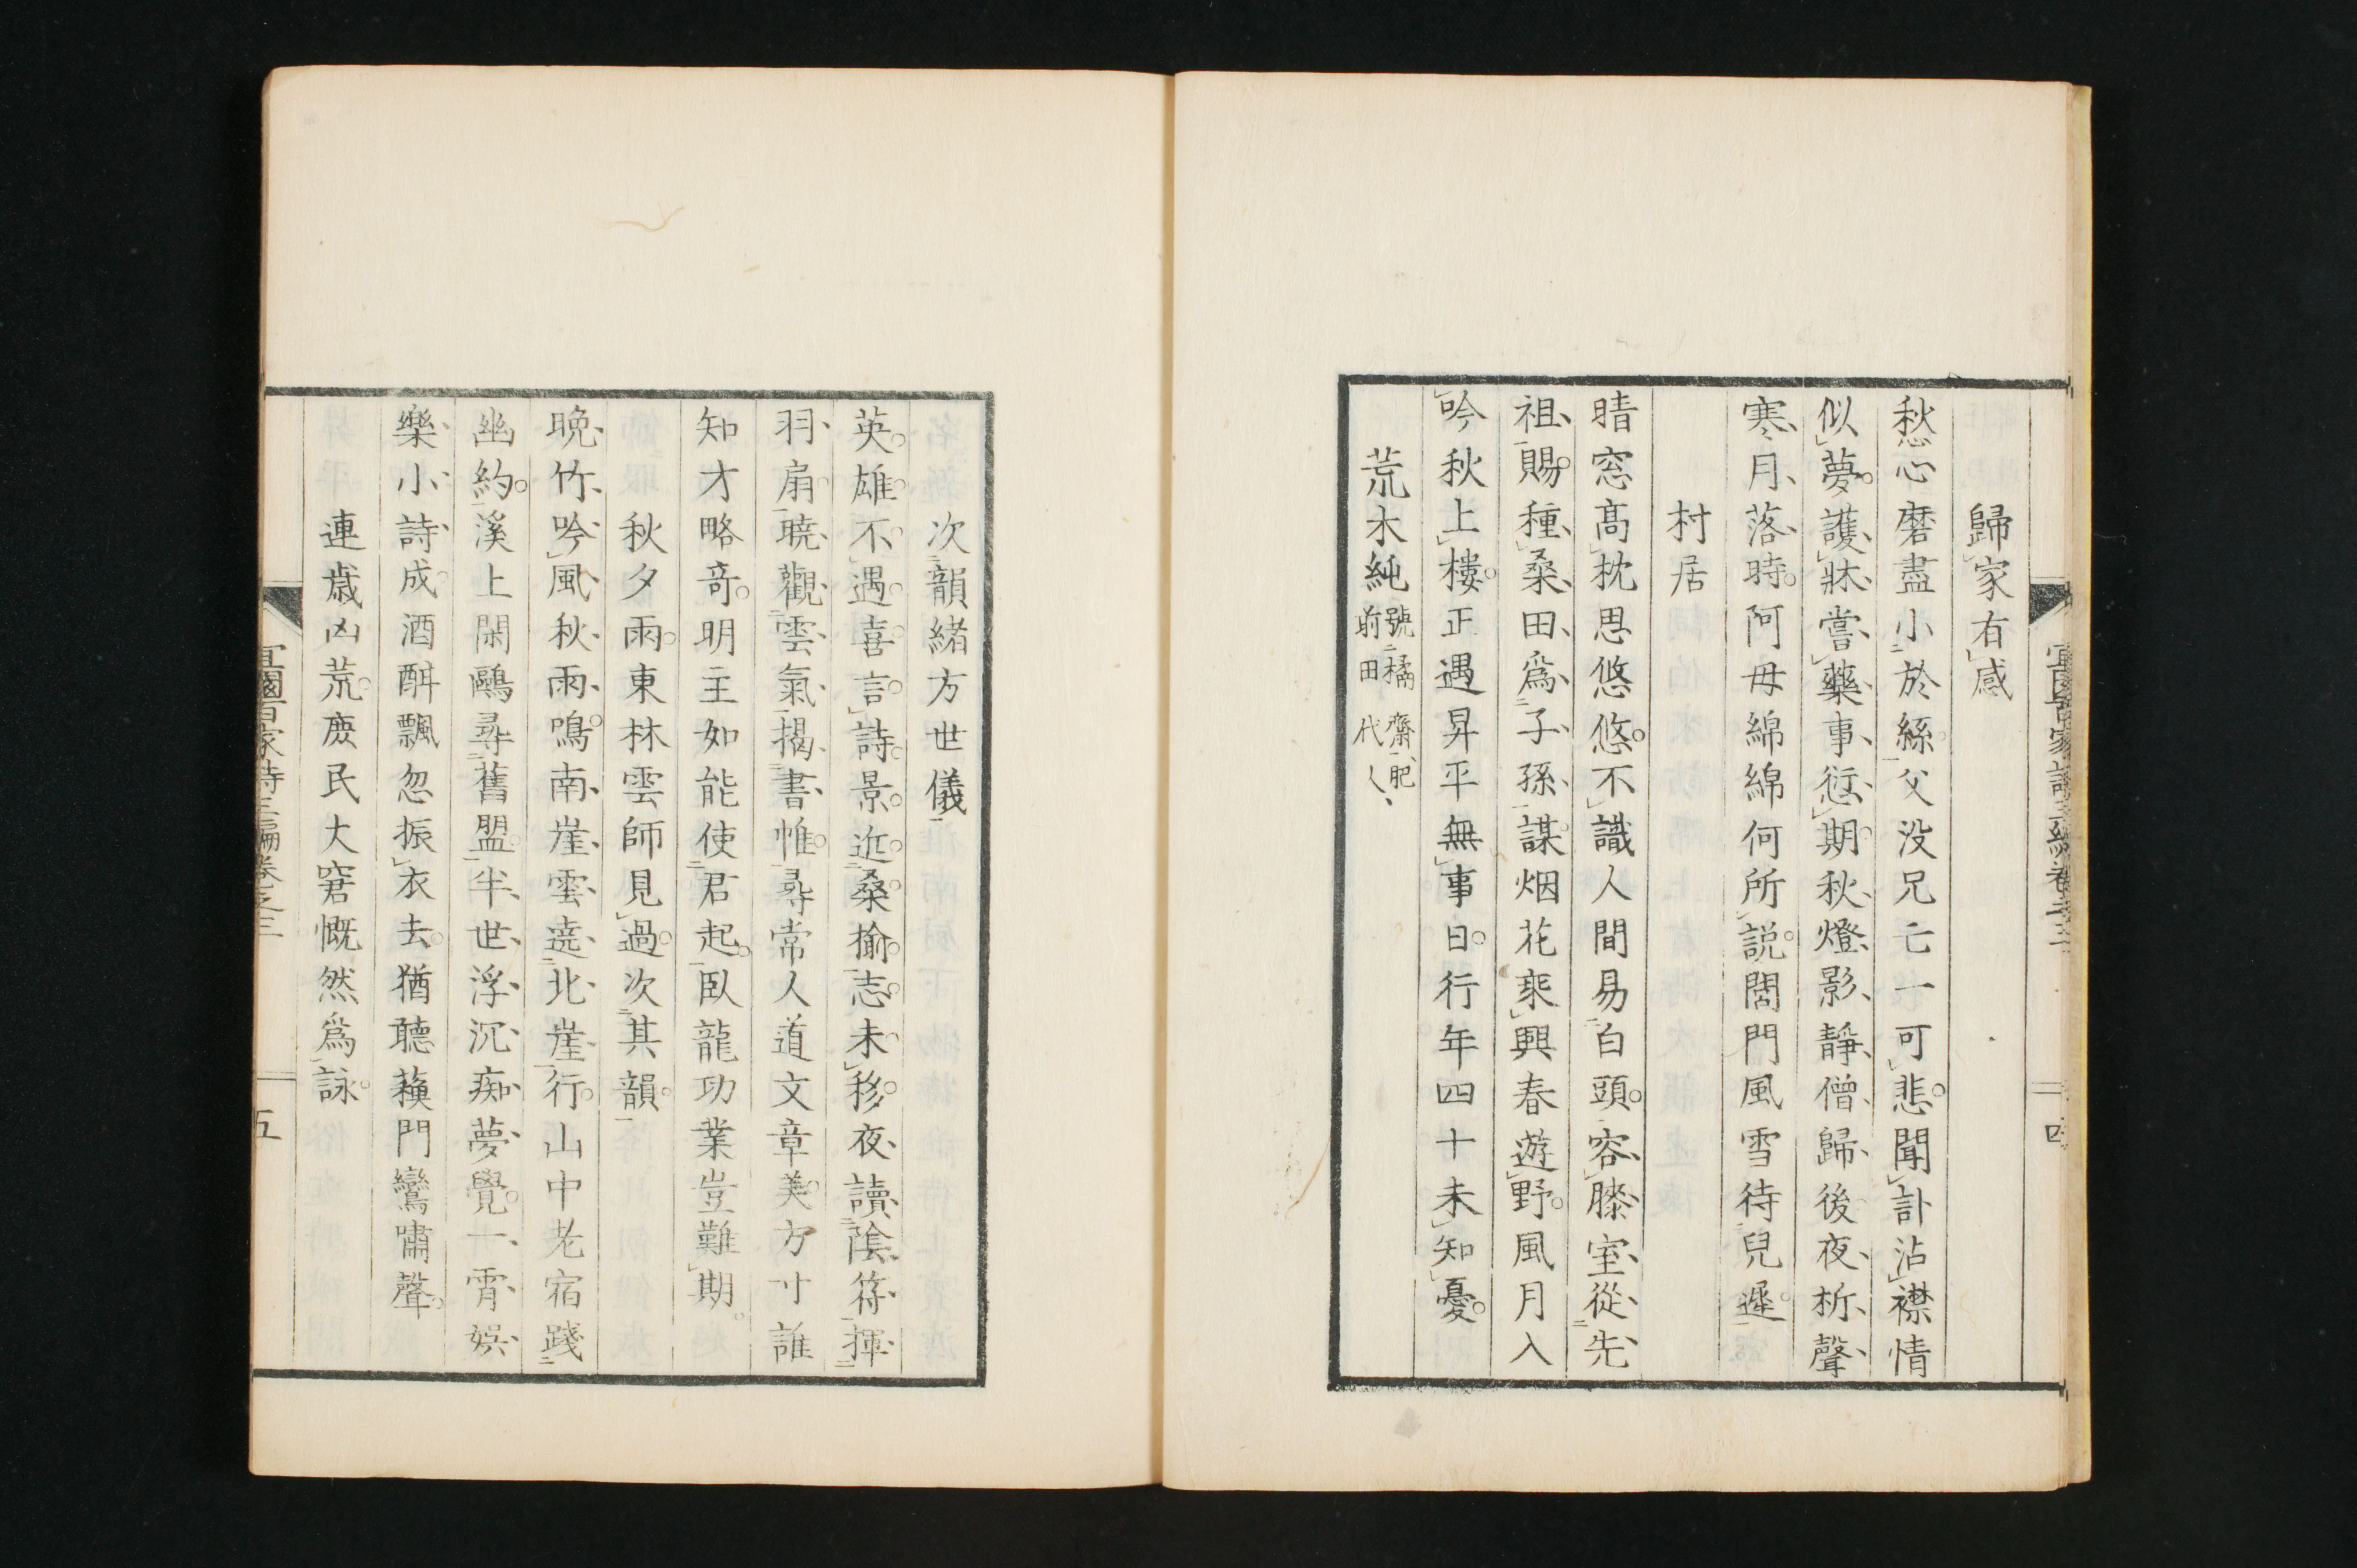 歸家有感
愁心磨盡小於絲父没兄亡一可悲聞訃沾襟情
似夢護牀嘗藥事愆期秋燈影靜僧歸後夜柝聲
寒月落時阿母綿綿何所説闔門風雪待兒遲
村居
晴窓高枕思悠悠不識人間易白頭容膝室從先
祖賜種桑田爲子孫謀烟花乘興春遊野風月入
吟秋上樓正遇昇平無事日行年四十未知憂
荒木純 號橘齋肥前田代人
四
次韻緒方世儀
英雄不遇喜言詩景近桑揄志未移夜讀陰符揮
羽扇曉觀雲氣揭書帷尋常人道文章美方寸誰
知才略竒明主如能使君起臥龍功業豈難期
秋夕雨東林雲師見過次其韻
晩竹吟風秋雨鳴南崖雲遶北崖行山中老宿踐
幽約溪上閑鷗尋舊盟半世浮沉痴夢覺一宵娯
樂小詩成酒酣飄忽振衣去猶聽蘓門鸞嘯聲
連歳凶荒庶民大窘慨然爲詠
宜園百家詩三編卷之三
五